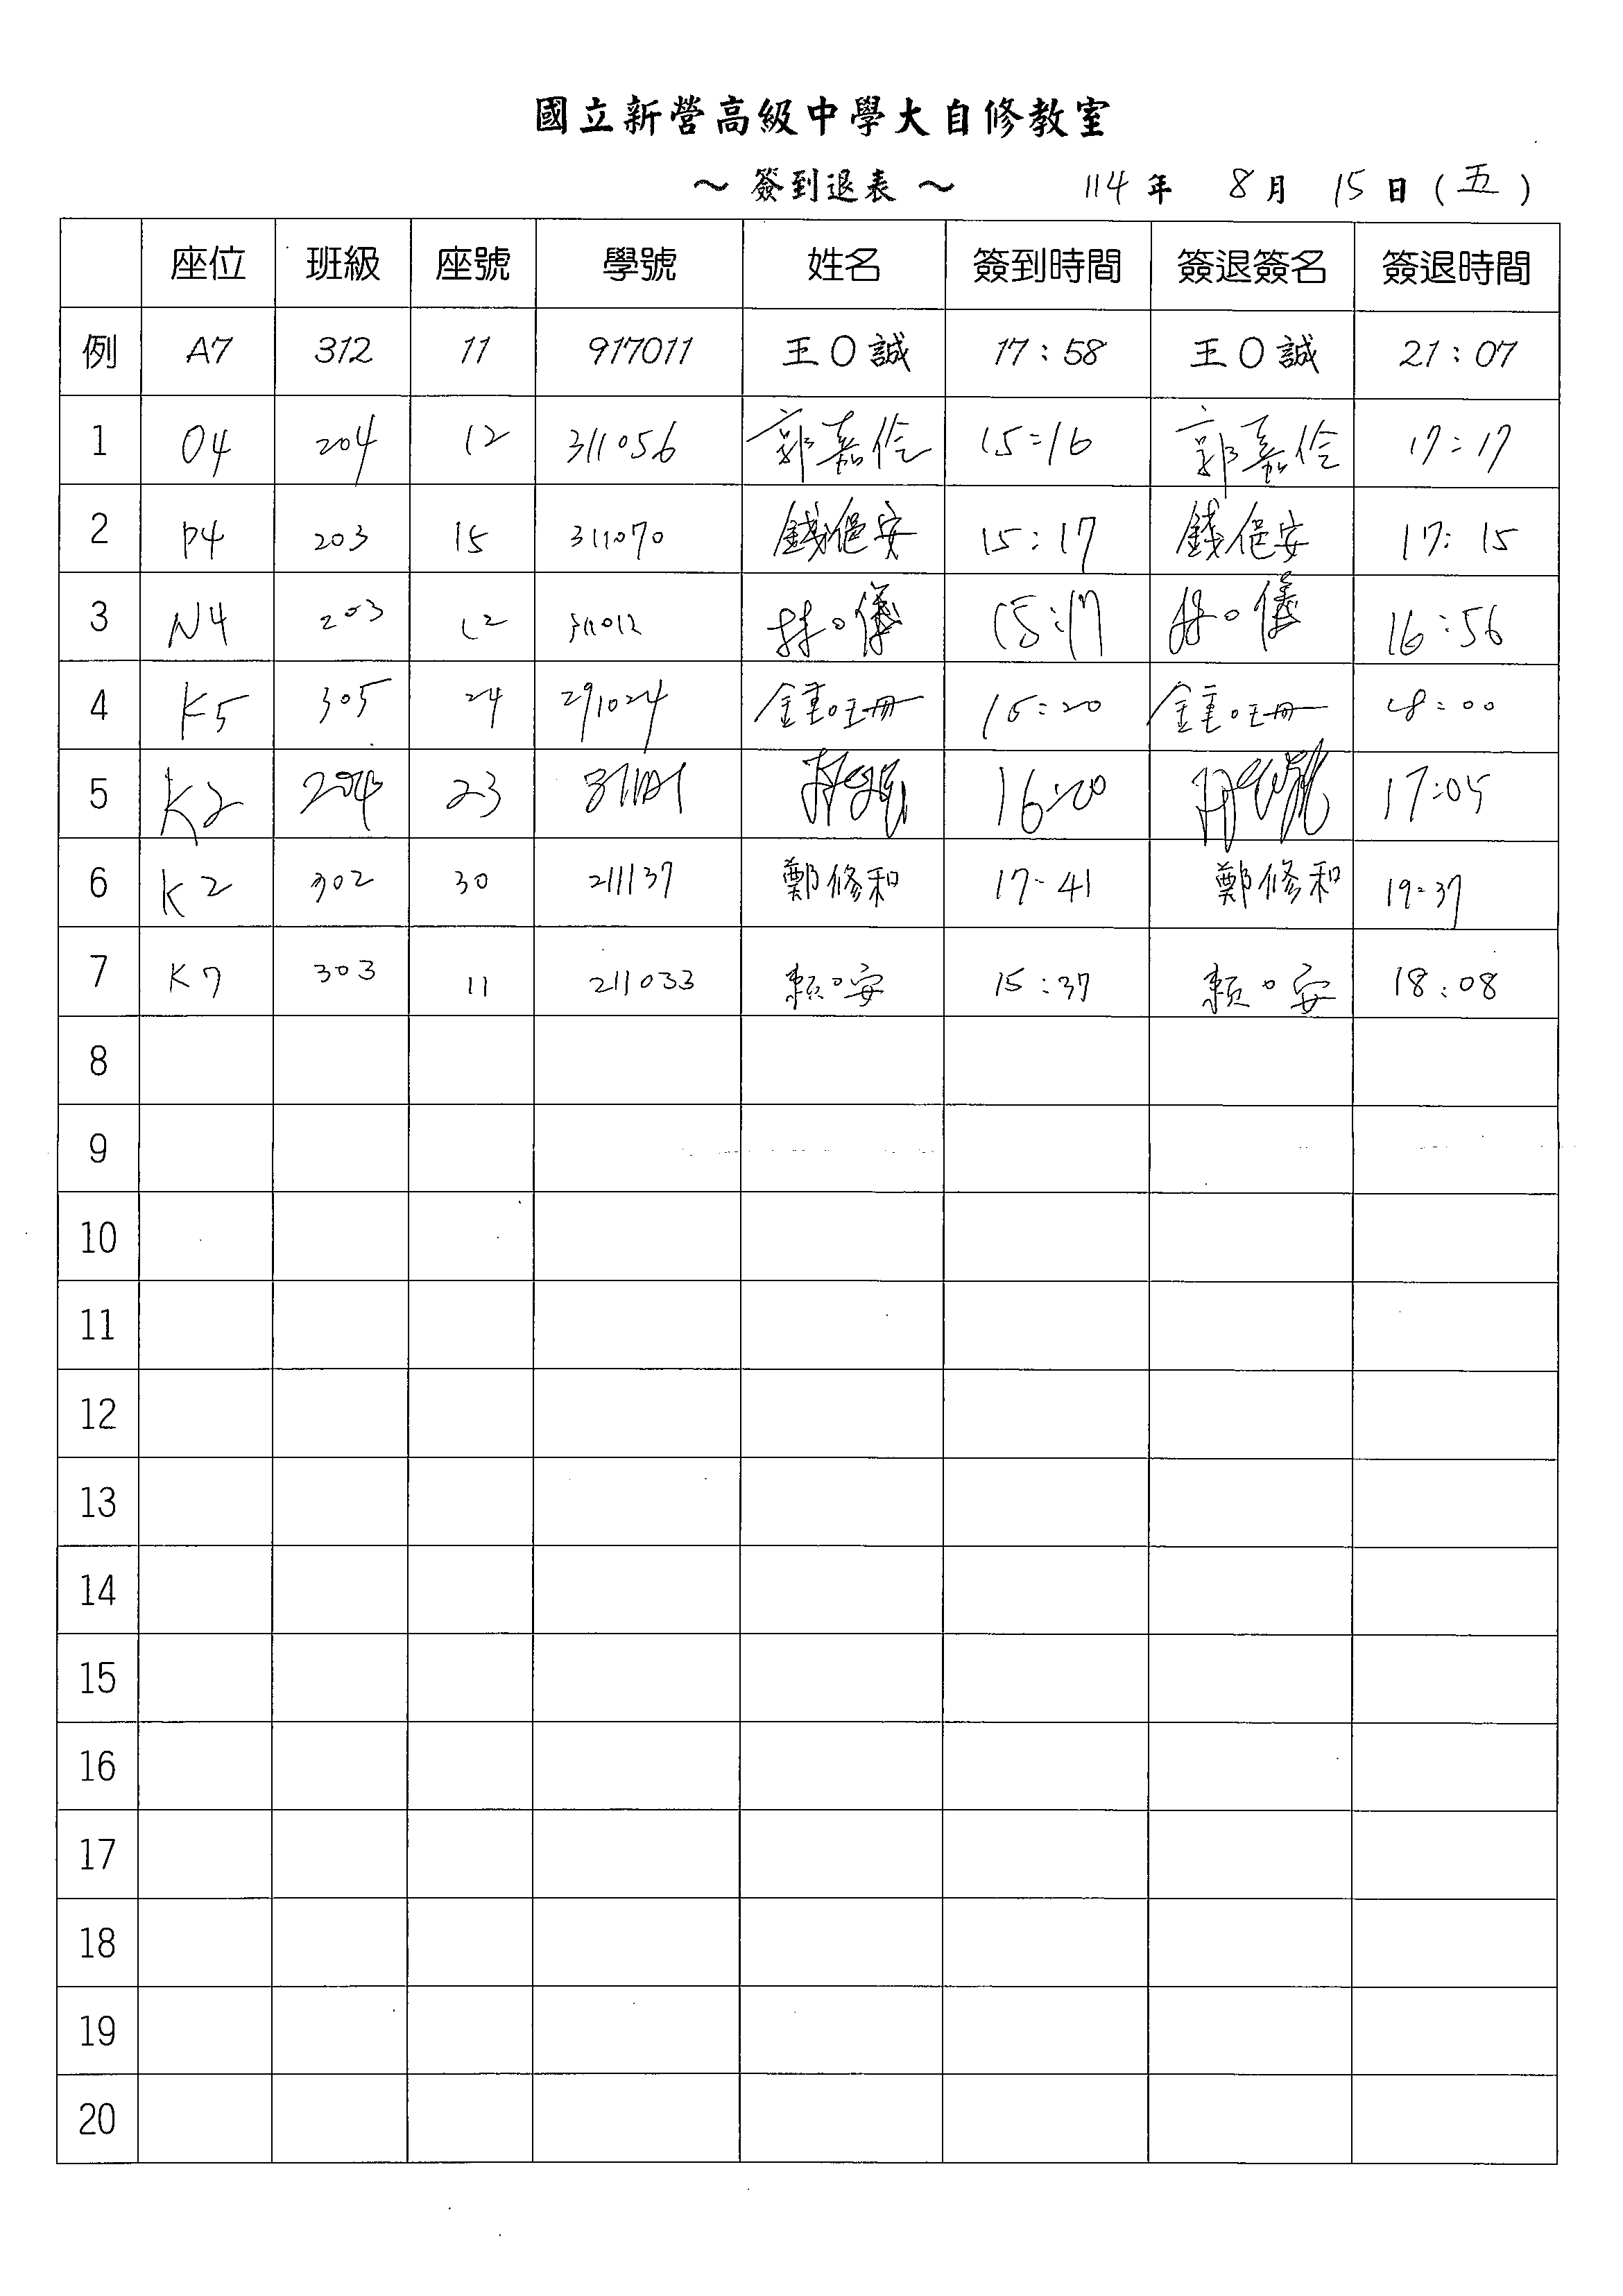 國立新營高級中學大自修教室
～ 簽到退表 ～ 114 年 8 月 15 日 ( 五 )
座位 班級 座號 學號 姓名 簽到時間 簽退簽名 簽退時間
例 A7 312 11 917011 王O誠 17:58 王O誠 21:07
1 04 204 12 311056 郭嘉伶 15:16 郭嘉伶 17:17
2 P4 203 15 311070 錢俋安 15:17 錢俋安 17:15
3 N4 203 12 林o儀 15:17 林o儀 16:56
4 K5 305 24 291024 鍾旺冊 16:20 鍾旺冊 18:00
5 K2 204 23 16:20 17:05
6 K2 302 30 211137 鄭修和 17:41 鄭修和 19:37
7 K7 303 11 211033 賴o安 15:37 賴o安 18:08
8
9
10
11
12
13
14
15
16
17
18
19
20